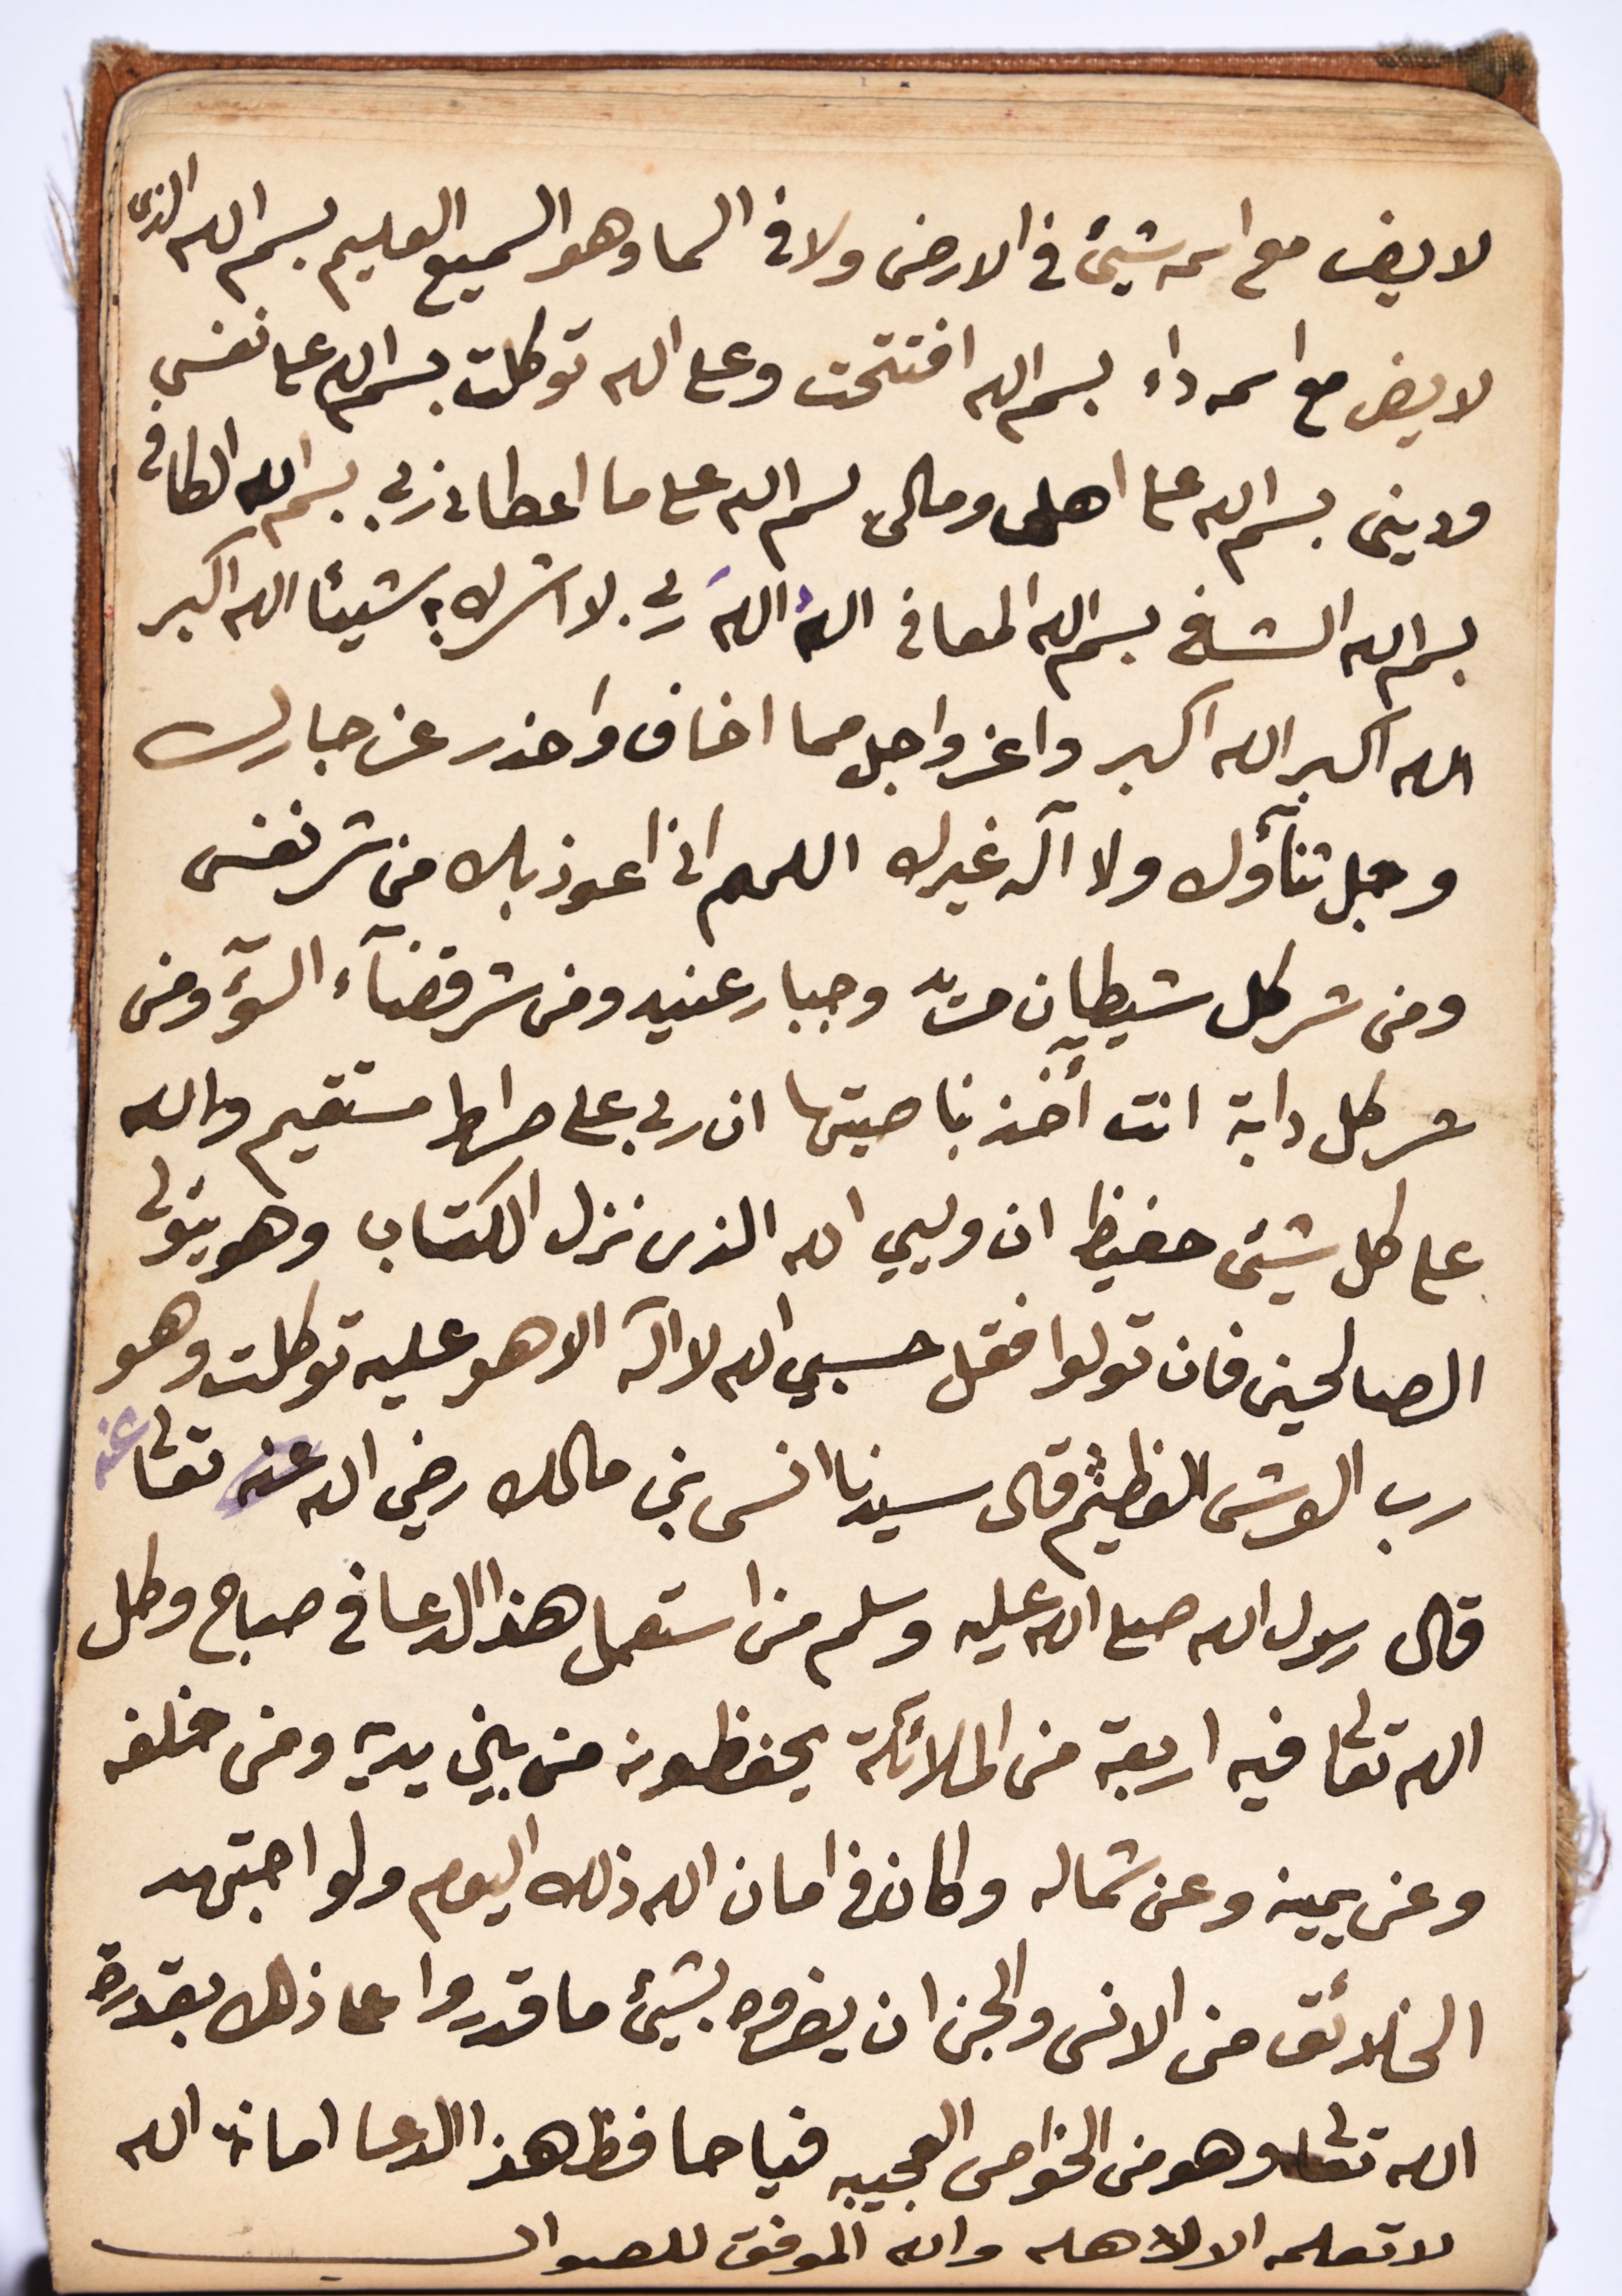 لا يضر مع اسمه شيئ في الارض ولا في السما وهو السميع العليم بسم الله الذى
لا يضر مع اسمه داء بسم الله افتتحت وعلى الله توكلت بسم الله على نفسي
ودينى بسم الله على اهلى ومالى بسم الله على ما اعطانى ربي بسم الله الكافى
بسم الله الشافى بسم الله المعافى اللهُ اللهُ ربي لا اشرك به شيئا الله اكبر
الله اكبر الله اكبر واعز واجل مما اخاف واحذر عز جارك
وجل ثنآؤك ولا آله غيرك اللهم انى اعوذ بك من شر نفسى
ومن شر كل شيطان مريد وجبار عنيد ومن شر قضآء السوٓء ومن
شر كل دابة انت آخذ بناصيتها ان ربي على صراط مستقيم والله
على كل شيئ حفيظ ان وليي الله الذى نزل الكتاب وهو يتولى
الصالحين فان تولوا فقل حسبي الله لا اله الا هو عليه توكلت وهو
رب العرش العظيم قال سيدنا انس بن مالك رضي الله عنه تعالى عنه
قال رسول الله صلى الله عليه وسلم من استعمل هذا الدعا فى صباح وكل
الله تعالى فيه اربعة من الملائكة يحفظونه من بين يديه ومن خلفه
وعن يمينه وعن شماله وكان فى امان الله ذلك اليوم ولو اجتهد
الخلائق من الانس والجن ان يضروه بشيئ ما قدروا على ذلك بقدرة
الله تعالى وهو من الخواص العجيبه فيا حافظ هذا الدعا امانة الله
لا تعلمه الا لاهله والله الموفق للصواب